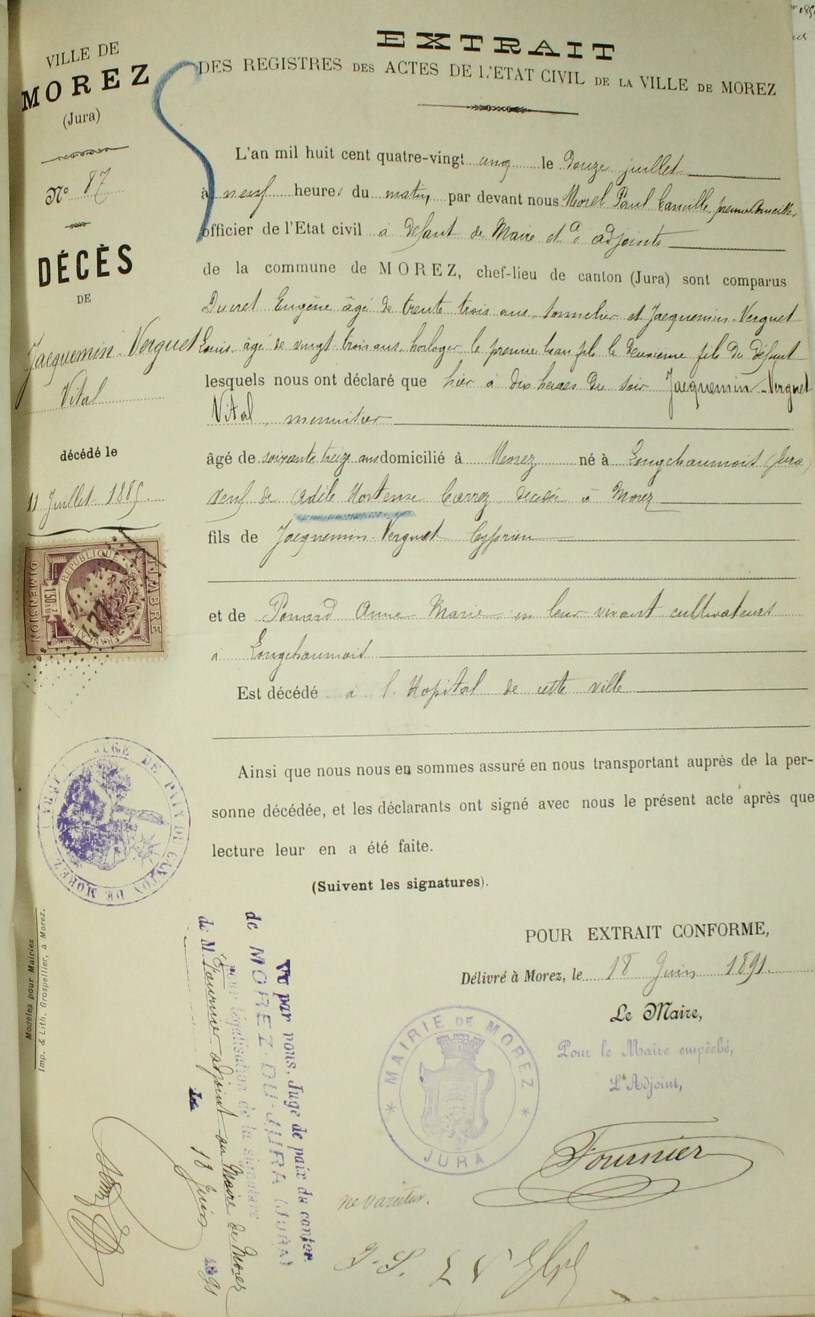 VILLE DE
MOREZ
(Jura)
N° 87
DÉCÈS
DE
Jacquemin-Verguet
Vital
décédé le
11 Juillet 1885
EXTRAIT
DES REGISTRES DES ACTES DE L'ÉTAT CIVIL DE LA VILLE DE MOREZ
L'an mil huit cent quatre-vingt cinq le Douze juillet
à neuf heures du matin par devant nous Morel Paul Camille premier Conseiller
officier de l'Etat civil à défaut de Maire et d' adjoints
de la commune de MOREZ, chef-lieu de canton (Jura) sont comparus
Ducret Eugène âgé de trente trois ans et Jacquemin-Verguet
Louis âgé de vingt trois ans horloger le premier le deuxième fils du défunt
lesquels nous ont déclaré que hier à dix heures du soir Jacquemin-Verguet
Vital, menuisier
âgé de soixante treize ans domicilié à Morez né à Longchaumois (Jura)
veuf de Adèle Hortense Carrez décédée à Morez
fils de Jacquemin-Verguet Cyprien
et de Ponard Anne Marie en leur vivant cultivateurs
à Longchaumois
Est décédé à l'Hopital de cette ville
Ainsi que nous nous en sommes assuré en nous transportant auprès de la per-
sonne décédée, et les déclarants ont signé avec nous le présent acte après que
lecture leur en a été faite.
(Suivent les signatures).
POUR EXTRAIT CONFORME,
Délivré à Morez, le 18 Juin 1891
Le Maire,
Pour le Maire empêché,
L'Adjoint,
Fournier
ne varietur.
MAIRIE DE MOREZ
JURA
TIMBRE
RÉPUBLIQUE
DIMENSION
JUGE DE PAIX DU CANTON DE MOREZ
Modèles pour Mairies
Imp. & Lith. Grospellier, à Morez.
Vu par nous, Juge de paix du canton
de MOREZ-DU-JURA (JURA)
pour légalisation de la signature
de M. Fournier adjoint au Maire de Morez
Le 18 Juin 1891